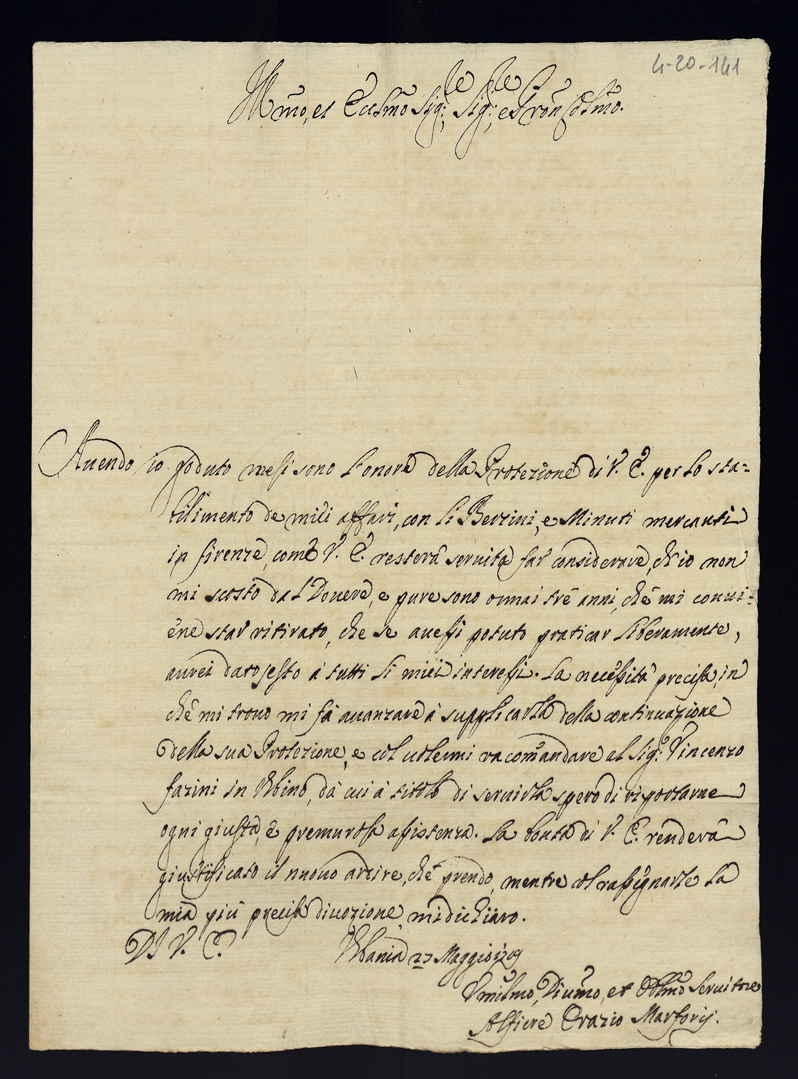 4-20-141
Ill.mo, et Ecc.mo Sig:re Sig:re e Pron Col.mo.
Auendo io goduto mesi sono l'onore della Protezione di V. E. per lo sta=
bilimento de miei affari, con li Berzini, e Minuti mercanti
in firenze, come V. E. resterà seruita far considerare, ch'io non
mi scosto dal Douere, e pure sono ormai tre anni, che mi conui=
ene star ritirato, che se auessi potuto praticar liberamente,
aurei dato sesto à tutti li miei interessi. La necessità precisa, in
che mi trouo mi fà auanzare à supplicarla della continuazione
della sua Protezione, e col uolermi racomandare al Sig: Vincenzo
fazini in Vrbino, da cui à titolo di seruirla spero di riportarne
ogni giusta, e premurosa assistenza. La bontà di V. E. renderà
giustificato il nuouo ardire, che prendo, mentre col rassegnarle la
mia più precisa diuozione mi dichiaro.
DI V. E. Vrbania 27 Maggio 1709
Vmilmo, Diumo, et Obmo Seruitore
Alfiere Orazio Marforij.